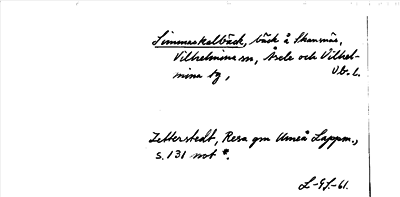 Simmaskalbäck, bäck å Skansnäs,
Vilhelmina sn, Åsele och Vilhel-
mina tg, V.b.l.
Zetterstedt, Resa gm Umeå Lappm.,
s. 131 not *.
L-Ef-61.